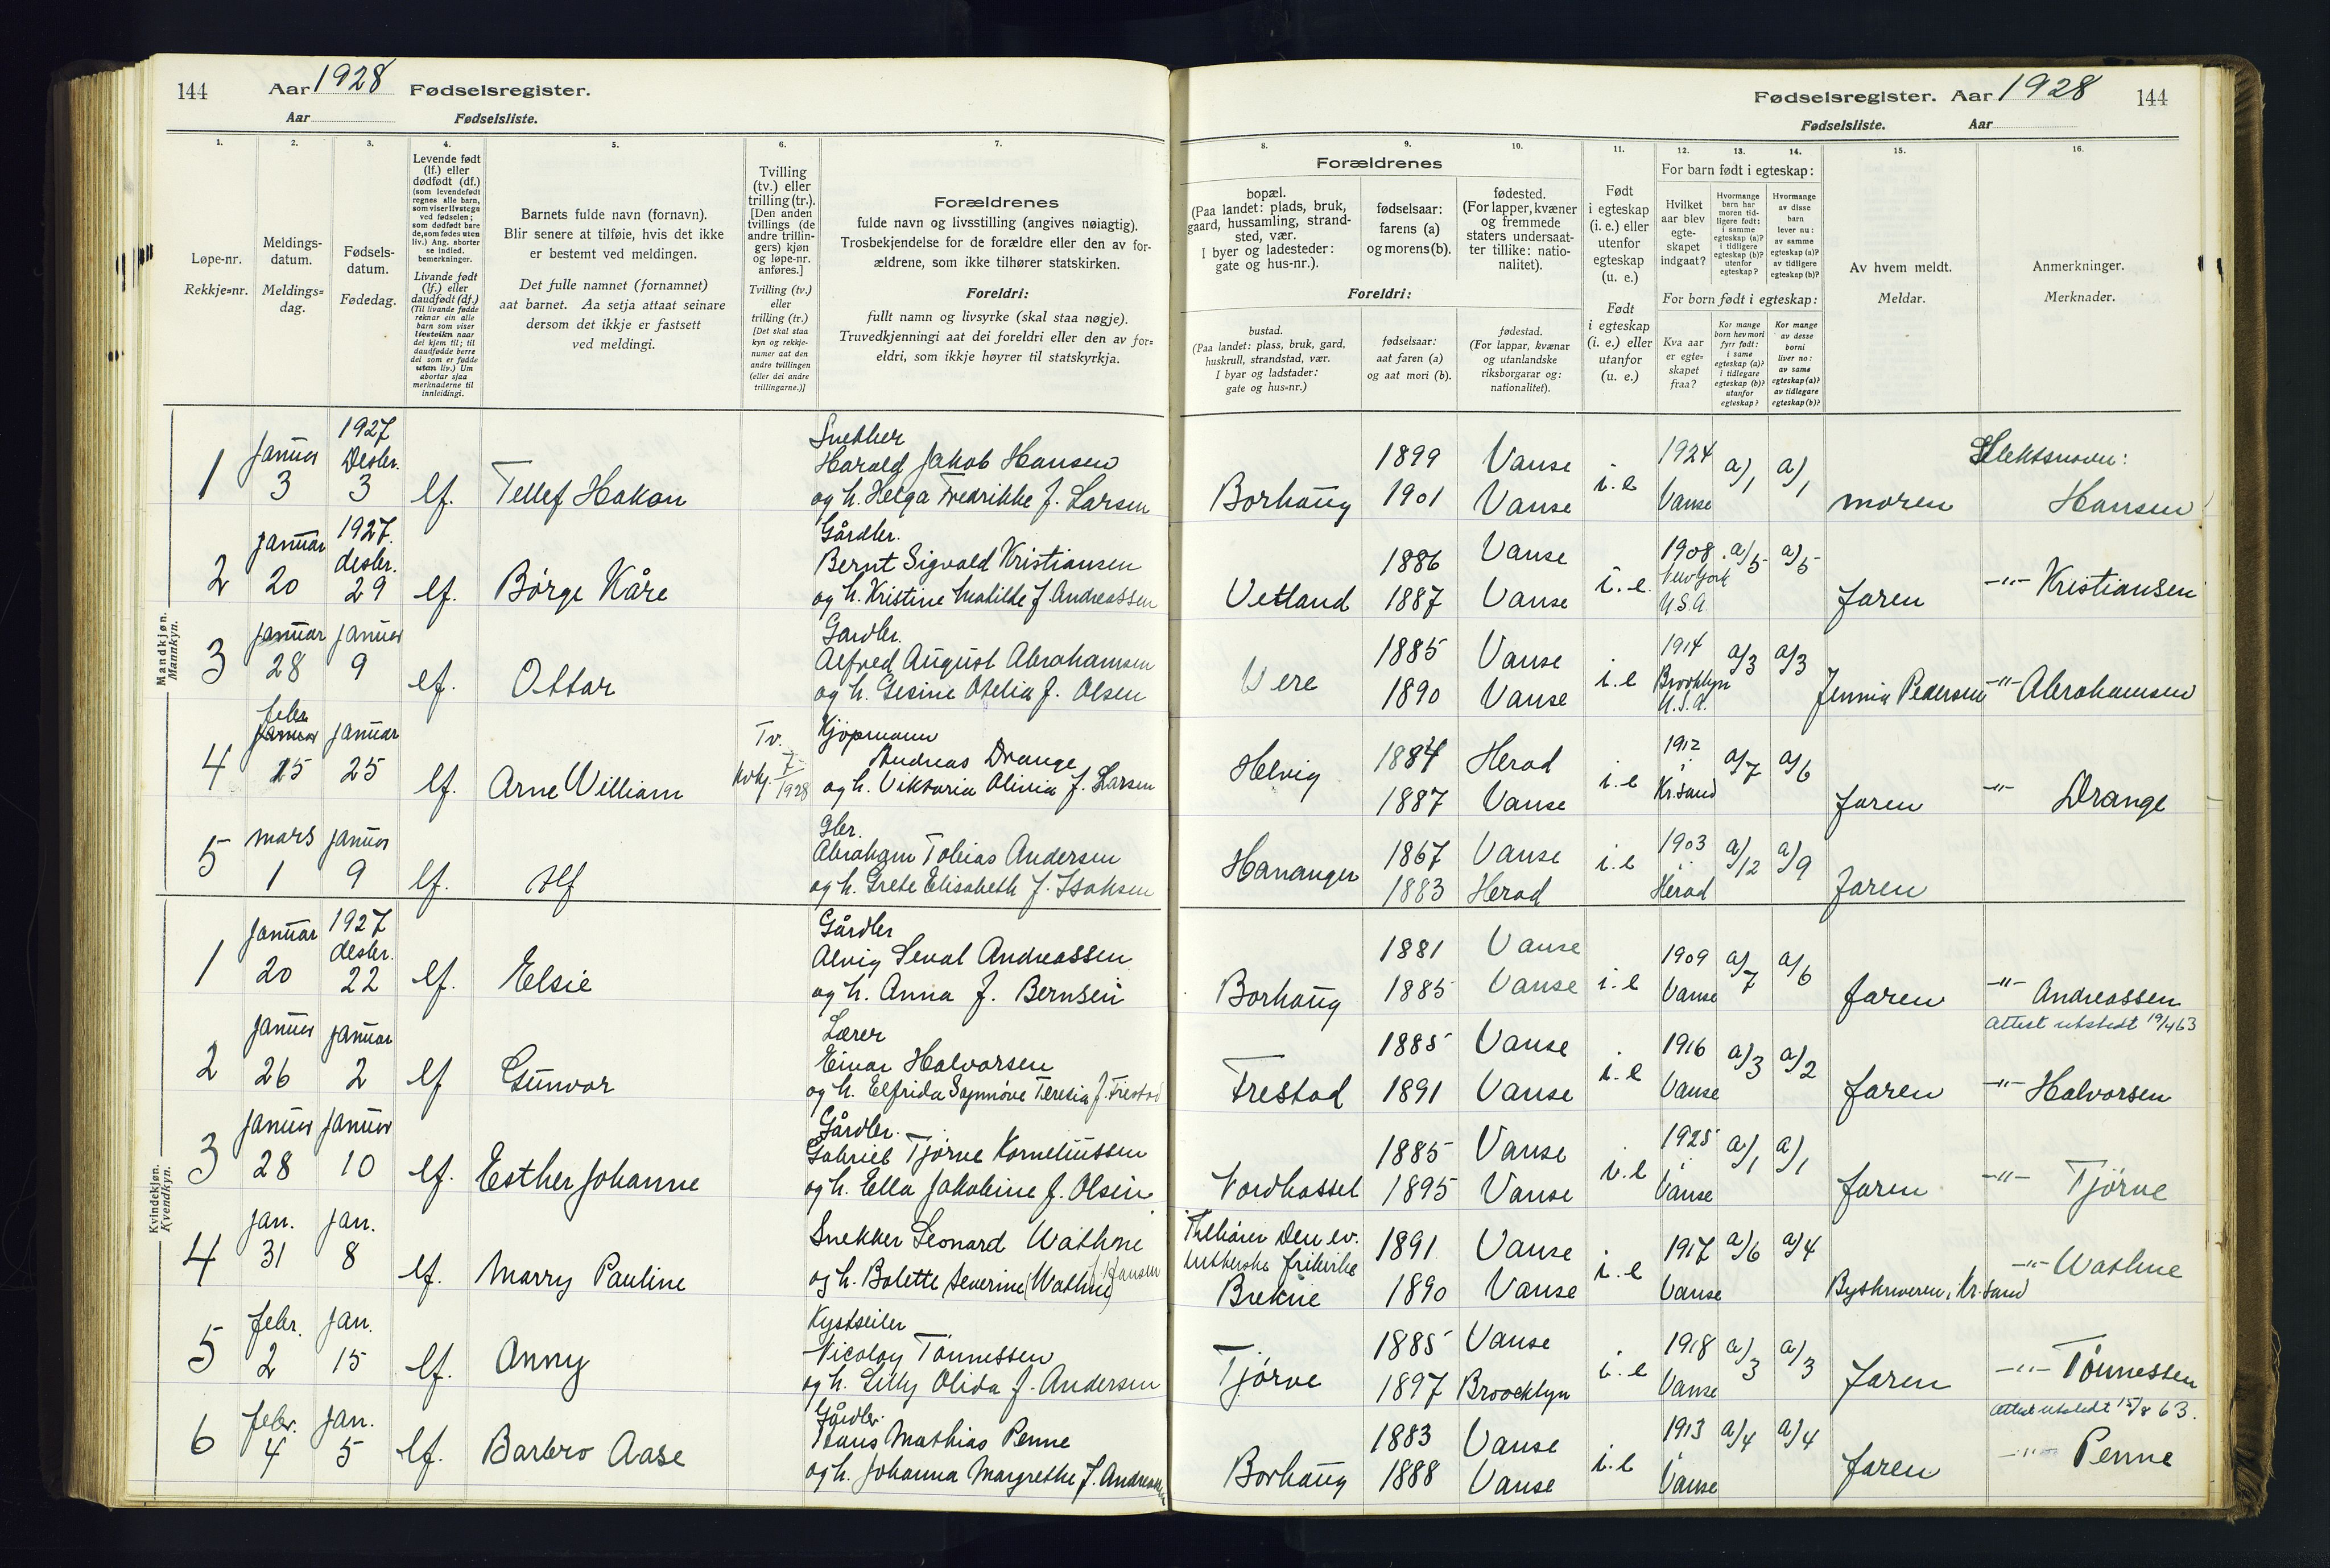 144 Aar 1928 Fødselsregister.
Aar Fødselsliste.
Fødselsregister. Aar 1928 144
Fødselsliste. Aar
1.
Løpe-nr.
Rekkje=nr.
2.
Meldings-
datum.
Meldings=
dag.
3.
Fødsels-
datum.
Fødedag.
4.
Levende født
(lf.) eller
dødfødt (df.)
(som levendefødt
regnes alle barn,
som viser livstegn
ved fødselen;
som dødfødt bare
de, som fødes uten
liv.) Ang. aborter
se indled.
bemerkninger.
Livande født
(lf.) eller
daudfødt (df.)
(Til livande fødde
reknar ein alle
barn som viser
livsteikn naar
dei kjem til; til
daudfødde berre
dei som er fødde
utan liv.) Um
abortar sjaa
merknaderne til
innleidingi.
5.
Barnets fulde navn (fornavn).
Blir senere at tilføie, hvis det ikke
er bestemt ved meldingen.
Det fulle namnet (fornamnet)
aat barnet. Aa setja attaat seinare
dersom det ikkje er fastsett
ved meldingi.
6.
Tvilling
(tv.) eller
trilling (tr.).
[Den anden
tvillings (de
andre trillin-
gers) kjøn
og løpe-nr.
anføres.]
Tvilling (tv.)
eller
trilling (tr.)
[Det skal staa
kyn og rekkje-
numer aat den
andre tvillingen
(eller dei andre
trillingarne.)]
7.
Forældrenes
fulde navn og livsstilling (angives nøiagtig).
Trosbekjendelse for de forældre eller den av for-
ældrene, som ikke tilhører statskirken.
Foreldri:
fullt namn og livsyrke (skal staa nøgje).
Truvedkjenningi aat dei foreldri eller den av for=
eldri, som ikkje høyrer til statskyrkja.
Forældrenes
8.
bopæl.
(Paa landet: plads, bruk,
gaard, hussamling, strand-
sted, vær.
I byer og ladesteder:
gate og hus-nr.).
9.
fødselsaar:
farens (a)
og morens (b).
10.
fødested.
(For lapper, kvæner
og fremmede
staters undersaat-
ter tillike: natio-
nalitet).
Foreldri:
bustad.
(Paa landet: plass, bruk, gard,
huskrull, strandstad, vær.
I byar og ladstader:
gate og hus=nr.)
fødselsaar:
aat faren (a)
og aat mori (b).
fødestad.
(For lappar, kvænar
og utanlandske
riksborgarar og:
nationalitet).
11.
Født
i egteskap
(i. e.) eller
utenfor
egteskap
(u. e.)
Født
i egteskap
(i. e.) eller
utanfor
(u. e.)
12. 13. 14.
For barn født i egteskap:
Hvilket
aar blev
egte-
skapet
indgaat?
Hvormange
barn har
moren tid-
ligere født:
i samme
egteskap (a)?
i tidligere
egteskap (b)?
utenfor
egteskap?
Hvormange
av disse
barn
lever nu:
av samme
egteskap (a)?
av tidligere
egteskap (b)?
For born født i egteskap:
Kva aar
er egte=
skapet
fraa?
Kor mange
born hev mori
fyrr født:
i same
egteskap (a)?
i tidlegare
egteskap (b)?
utanfor
egteskap?
Kor mange
av desse
borni
liver no:
av same
egteskap (a)?
av tidlegare
egteskap (b)?
15.
Av hvem meldt.
Meldar.
16.
Anmerkninger.
Merknader.
Mandkjøn.
Mannkyn.
1 Januar 3 1927 Desbr. 3 lf. Tellef Hakon
Snekker
Harald Jakob Hansen
og h. Helga Fredrikke f. Larsen
Borhaug 1899 1901 Vanse Vanse i.e 1924 Vanse a/1 a/1 moren Slektsnavn: Hansen
2 Januar 20 1927. desbr. 29 lf. Børge Kåre
Gårdbr.
Bernt Sigvald Kristiansen
og h. Kristine Matilde f. Andreassen
Vetland 1886 1887 Vanse Vanse i.e. 1908. New York U.S.A. a/5 a/5 faren -"- Kristiansen
3 Januar 28 Januar 9 lf. Ottar
Gardbr.
Alfred August Abrahamsen
og h. Gesine Otelia f. Olsen
Vere 1885 1890 Vanse Vanse i.e 1914 Brooklyn U.S.A. a/3 a/3 Jennia Pedersen -"- Abrahamsen
4 febr. Januar 15 Januar 25 lf. Arne William Tv. kvkj. 7 1928
Kjøpmann
Andreas Drange
og h. Viktoria Olivia f. Larsen
Helvig 1884 1887 Herad Vanse i.e 1912 Kr.sand a/7 a/6 faren -"- Drange
5 mars 1 Januar 9 lf. Alf
Gbr.
Abraham Tobias Andersen
og h. Grete Elisabeth f. Isaksen
Hananger 1867 1883 Vanse Herad i.e 1903 Herad a/12 a/9 faren
Kvindekjøn.
Kvendkyn.
1 Januar 20 1927 desbr. 22 lf. Elsie
Gårdbr
Alvig Seval Andreassen
og h. Anna f. Bernsen
Borhaug 1881 1885 Vanse Vanse i.e 1909 Vanse a/7 a/6 faren -"- Andreassen
Attest utstedt 19/4 63
2 Januar 26 Januar 2 lf Gunvor
Lærer
Einar Halvorsen
og h. Elfrida Sagnnøve Teresia f. Frestad
Frestad 1885 1891 Vanse Vanse i.e 1916 Vanse a/3 a/2 faren -"- Halvorsen
3 Januar 28 Januar 10 lf. Esther Johanne
Gårdbr.
Gabriel Tjørve Korneliussen
og h. Ella Jakobine f. Olsen
Nordhassel 1885 1895 Vanse Vanse i.e 1925 Vanse a/1 a/1 faren -"- Tjørve
4 Jan. 31 Jan. 8 lf. Marry Pauline
Snekker Leonard Wathne
og h. Bolette Severine (Wathne) f. Hansen
Tilhører Den ev.
lutherske frikirke
Brekne 1891 1890 Vanse Vanse i.e 1917 Vanse a/6 a/4 Byskriveren, Kr.sand -"- Wathne
5 febr. 2 Jan. 15 lf. Anny
Kystseiler
Nicolay Tønnessen
og h. Lilly Olida f. Andersen
Tjørve 1885 1897 Vanse Broocklyn i.e 1918 Vanse a/3 a/3 faren -"- Tønnessen
Attest utstedt 15/8 63.
6 febr. 4 Jan. 5 lf. Barbro Aase
Gårdbr.
Hans Mathias Penne
og h. Johanna Margrethe f. Andreassen
Borhaug 1883 1888 Vanse Vanse i.e 1913 Vanse a/4 a/4 faren -"- Penne